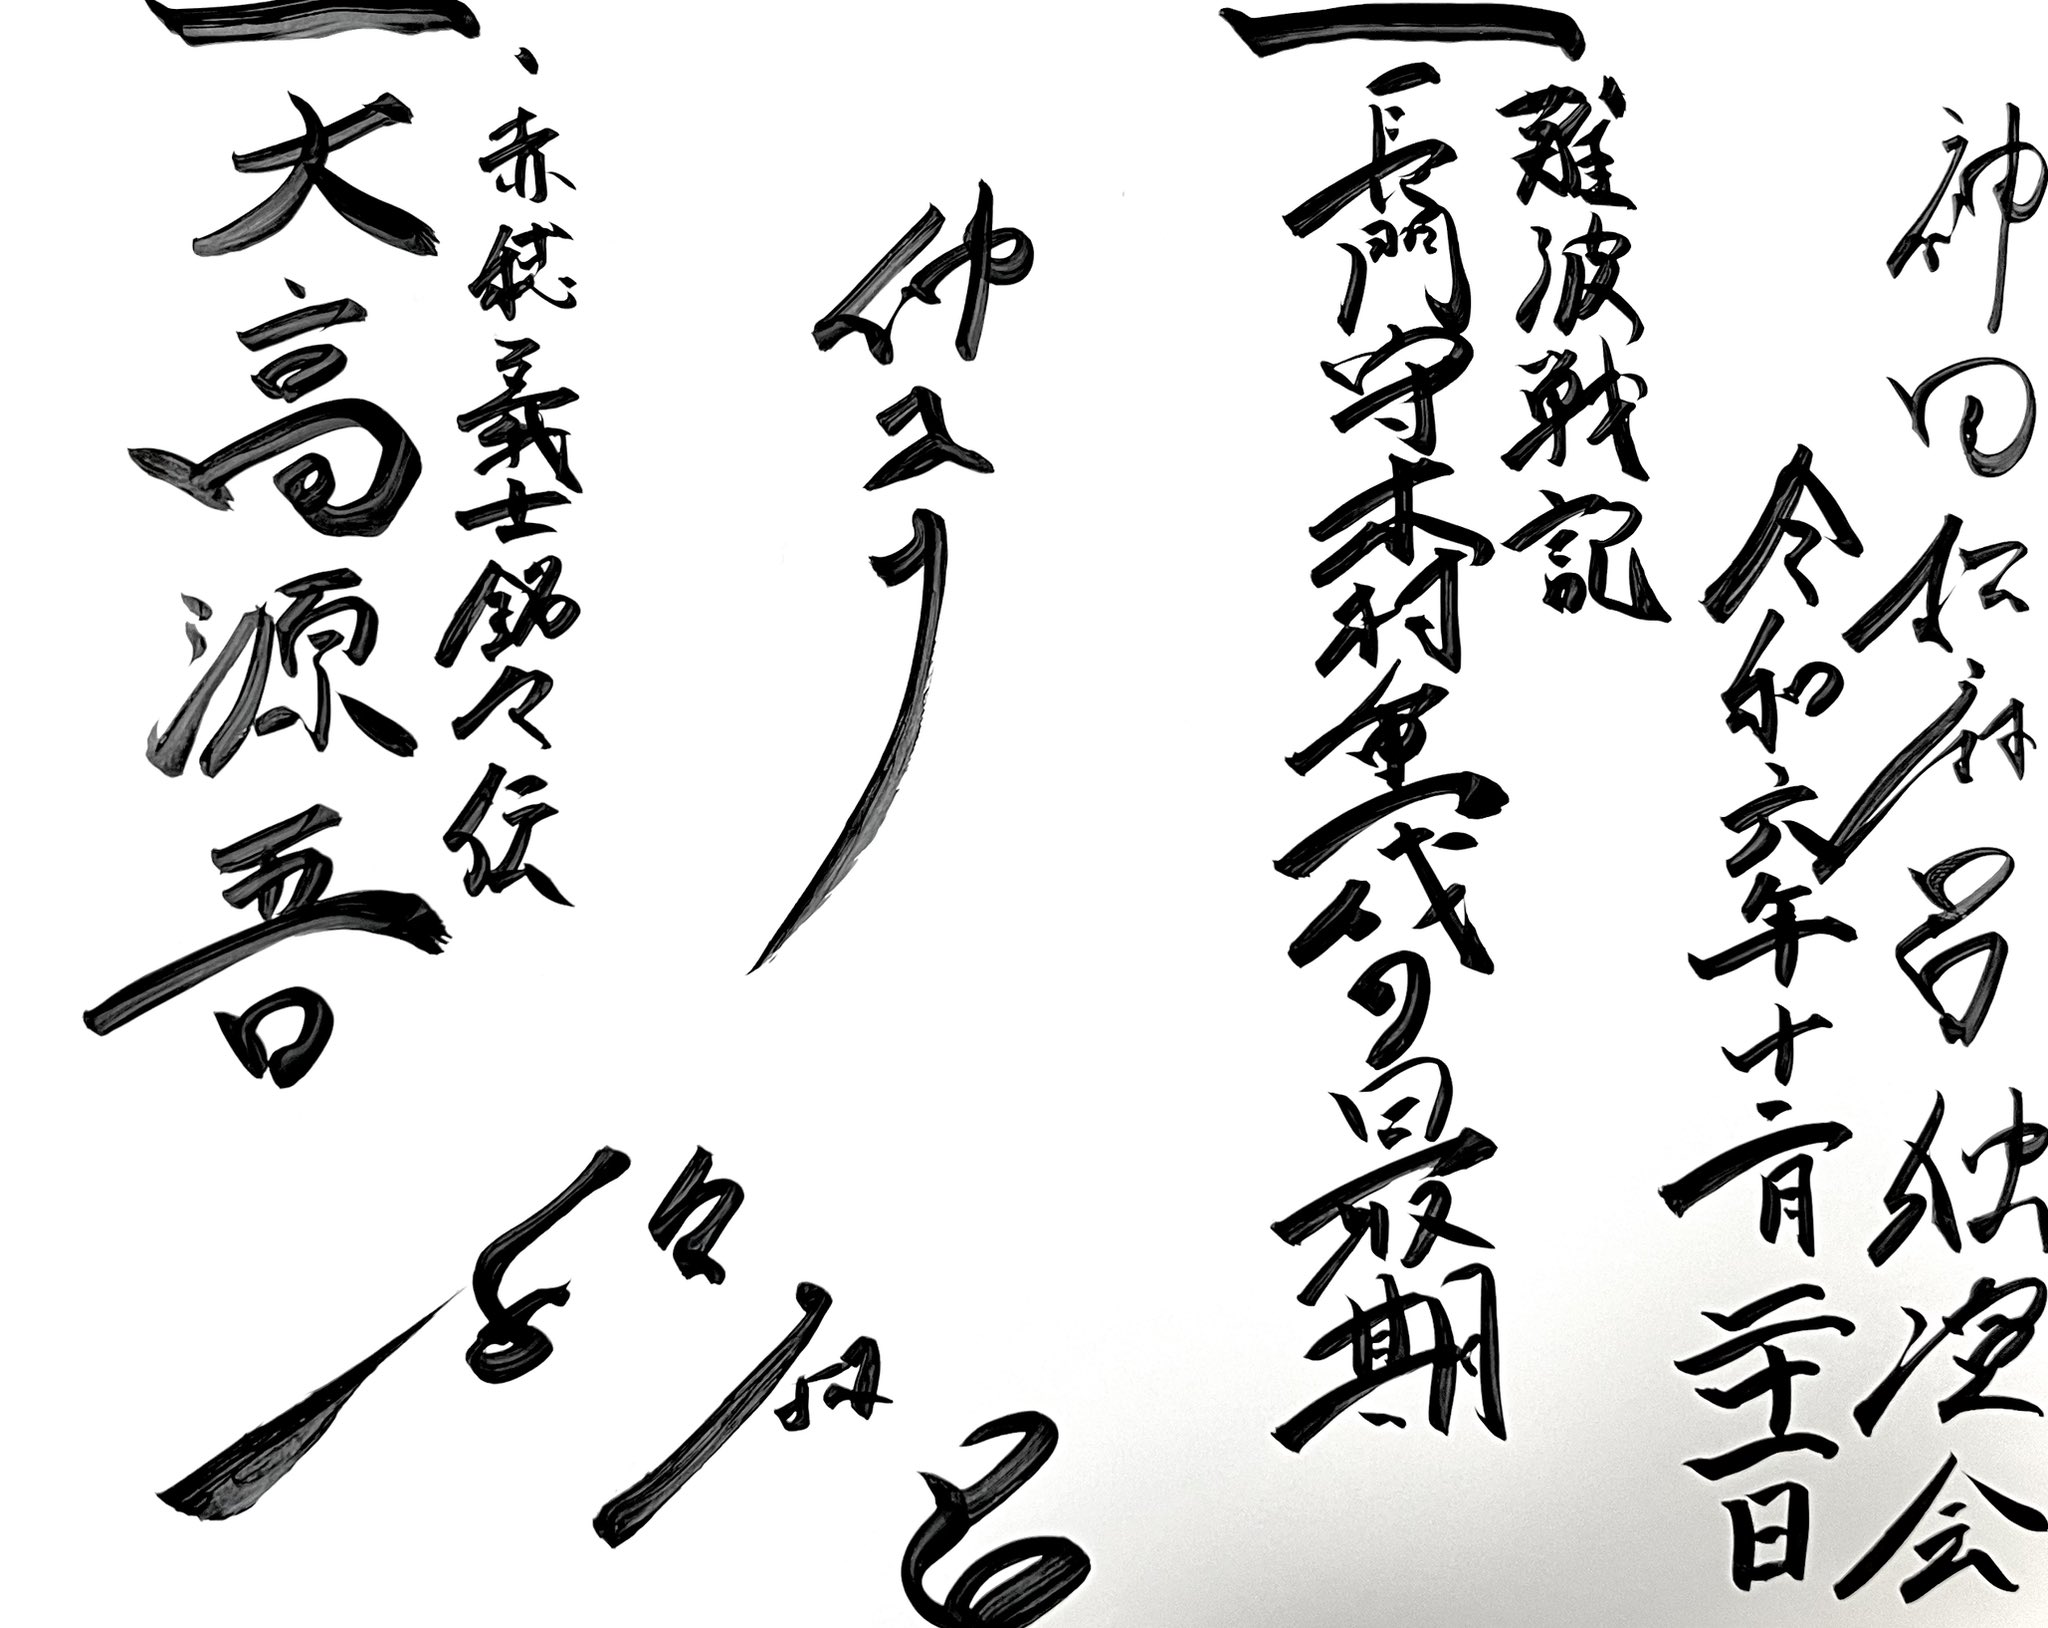 神田伯麻呂 独演会
令和六年十二月二十一日
難波戦記
一、長門守木村重成の最期
仲入り
、赤穂義士銘々伝
一 大高源吾
伯麻呂